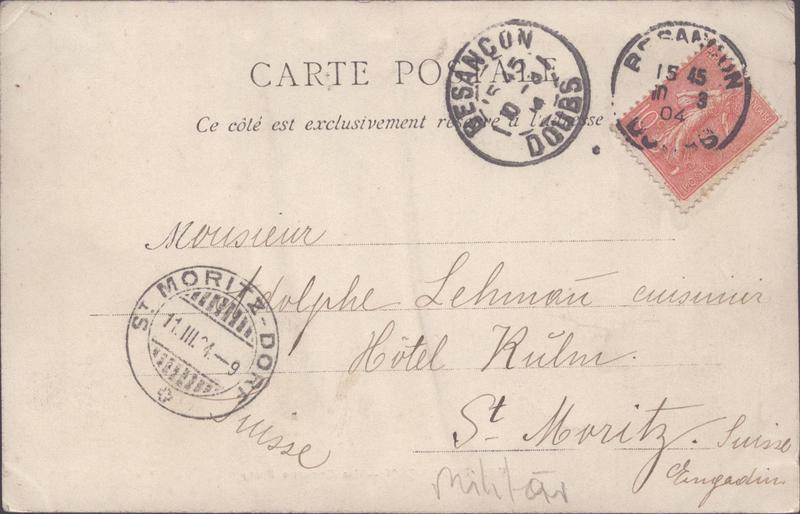 CARTE POSTALE
Ce côté est exclusivement réservé à l'adresse
BESANÇON
15 45
10
DOUBS
BESANÇON
15 45
10 3
04
DOUBS
Monsieur
Adolphe Lehmañ cuisinier
Hôtel Kulm.
St. Moritz. Suisse
Engadin
Suisse
ST MORITZ-DORF
11.III.04.-9
Militär